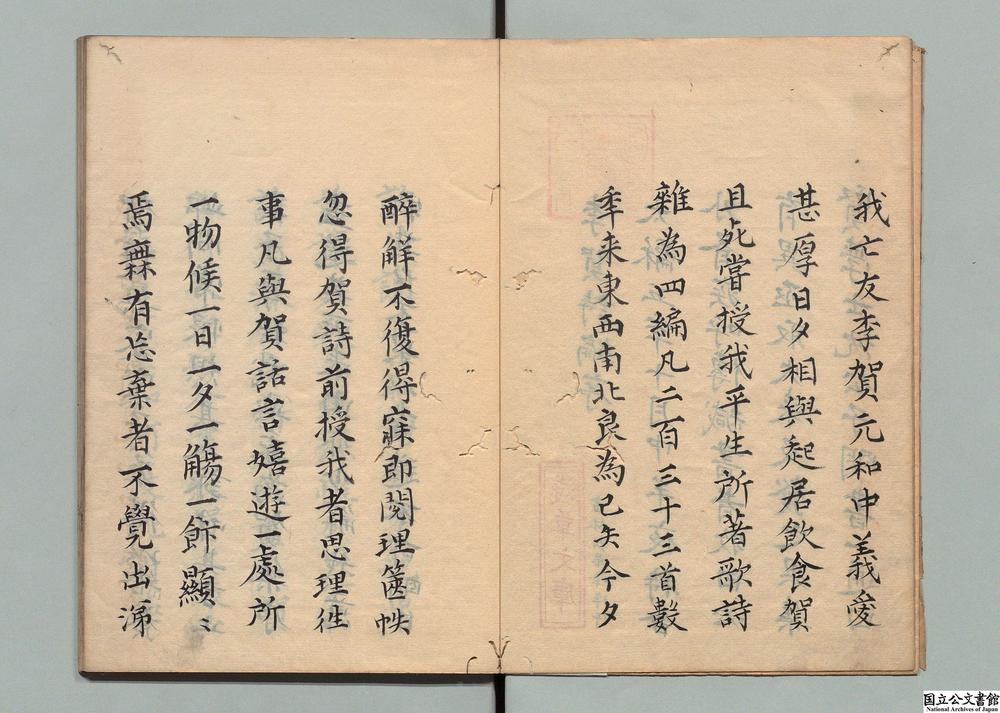 我亡友李賀元和中義愛
甚厚日夕相與起居飲食賀
且死嘗授我平生所著歌詩
雜為四編凡二百三十三首數
年来東西南北良為已矢今夕
醉解不復得寐即閱理篋帙
忽得賀詩前授我者思理徃
事凡與賀話言嬉遊一處所
一物候一日一夕一觴一飰顯〻
焉無有忘棄者不覺出涕
國立公文書館
National Archives of Japan